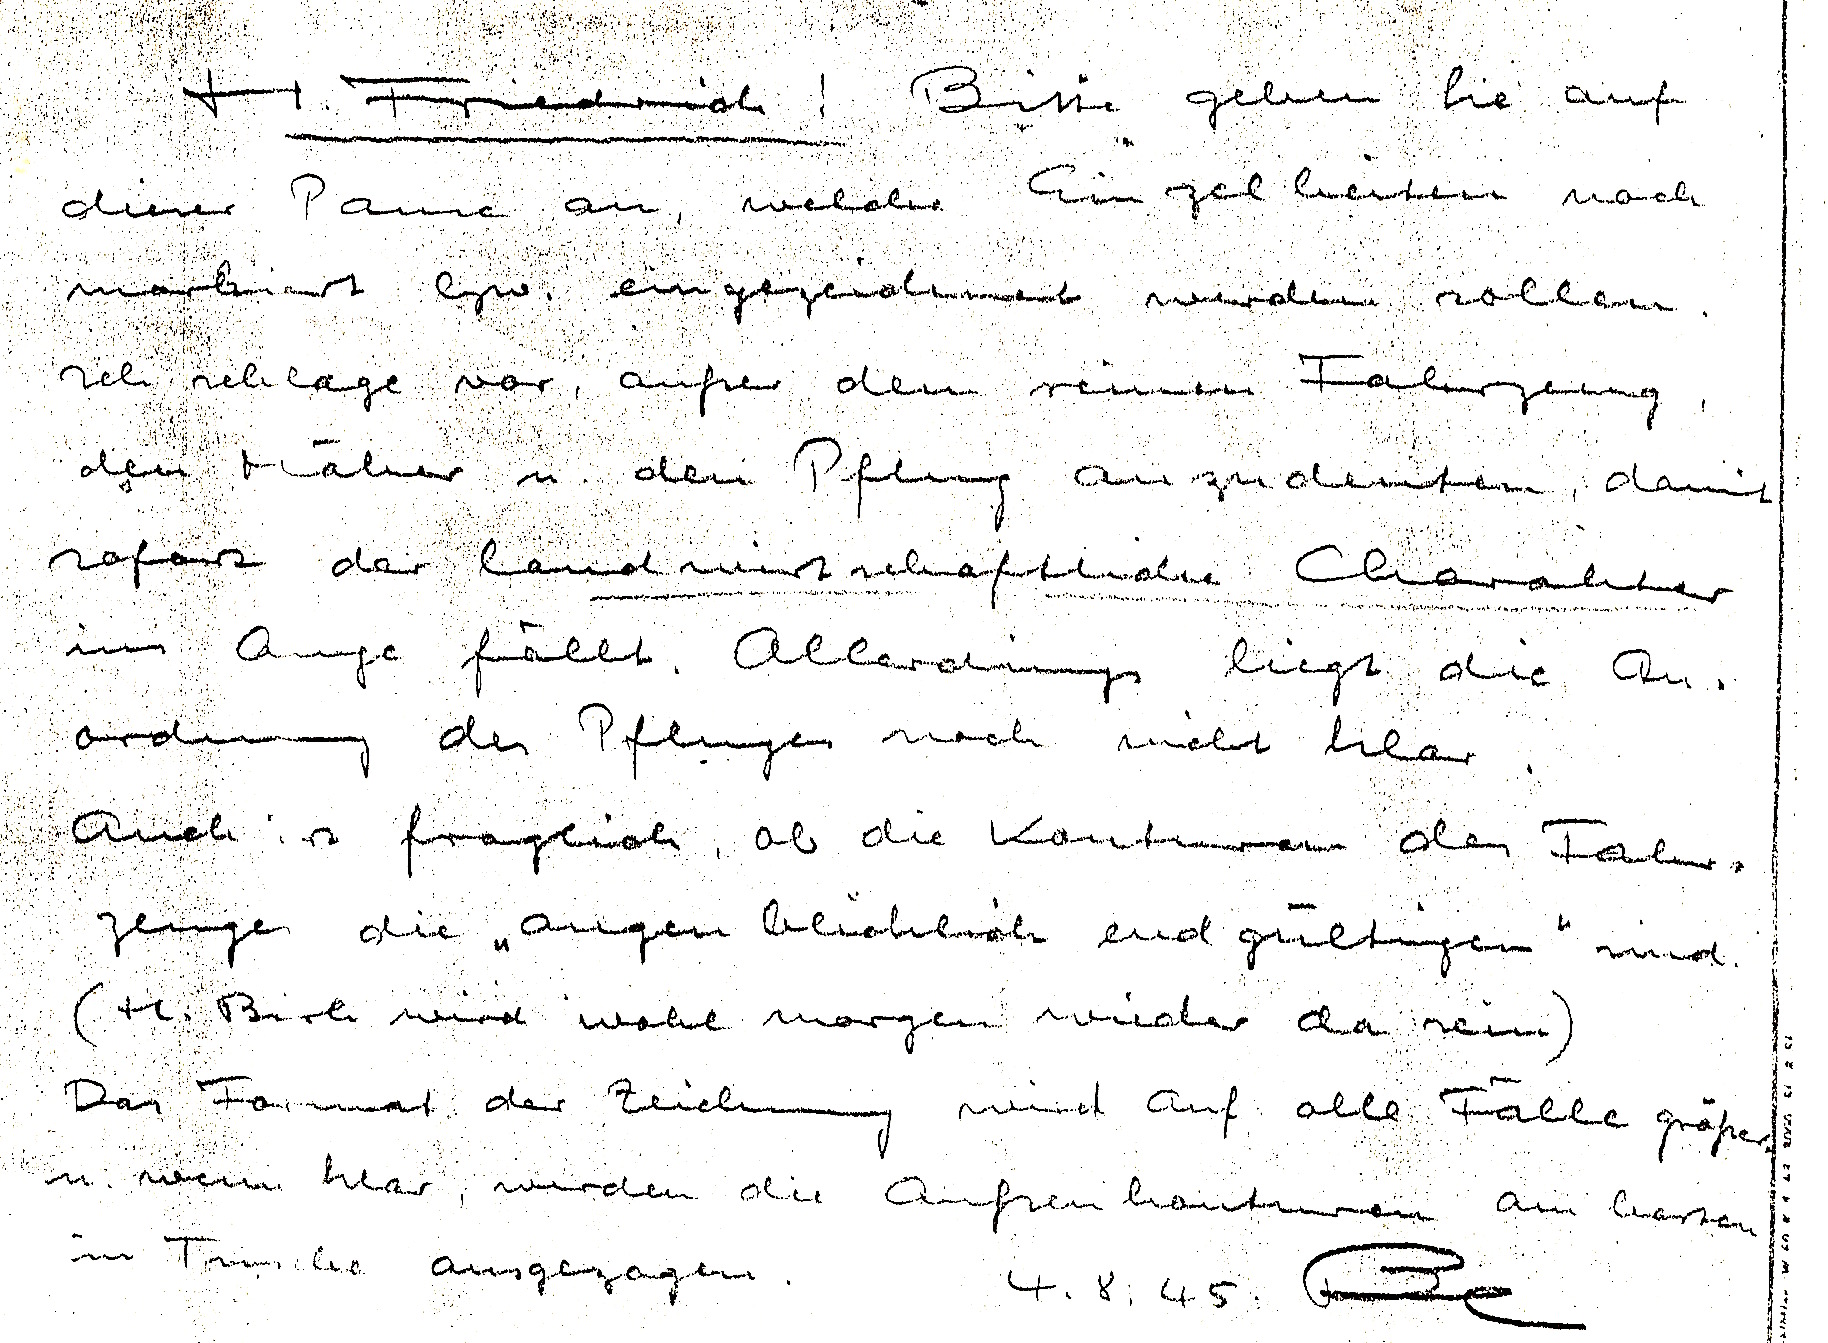 H. Friedrich! Bitte geben Sie auf
dieser Pause an, welche Einzelheiten noch
markiert bzw. eingezeichnet werden sollen.
Ich schlage vor, außer dem reinen Fahrzeug,
den Mäher u. den Pflug anzudeuten, damit
sofort der landwirtschaftliche Charakter
ins Auge fällt. Allerdings liegt die An-
ordnung des Pfluges noch nicht klar.
Auch is fraglich, ob die Konturen des Fahr-
zeuges die „augenblicklich endgültigen" sind.
(H. Birk wird wohl morgen wieder da sein)
Das Format der Zeichnung wird auf alle Fälle größer,
u. wenn klar, werden die Außenkonturen am besten
in Tusche ausgezogen. 4.8.45.